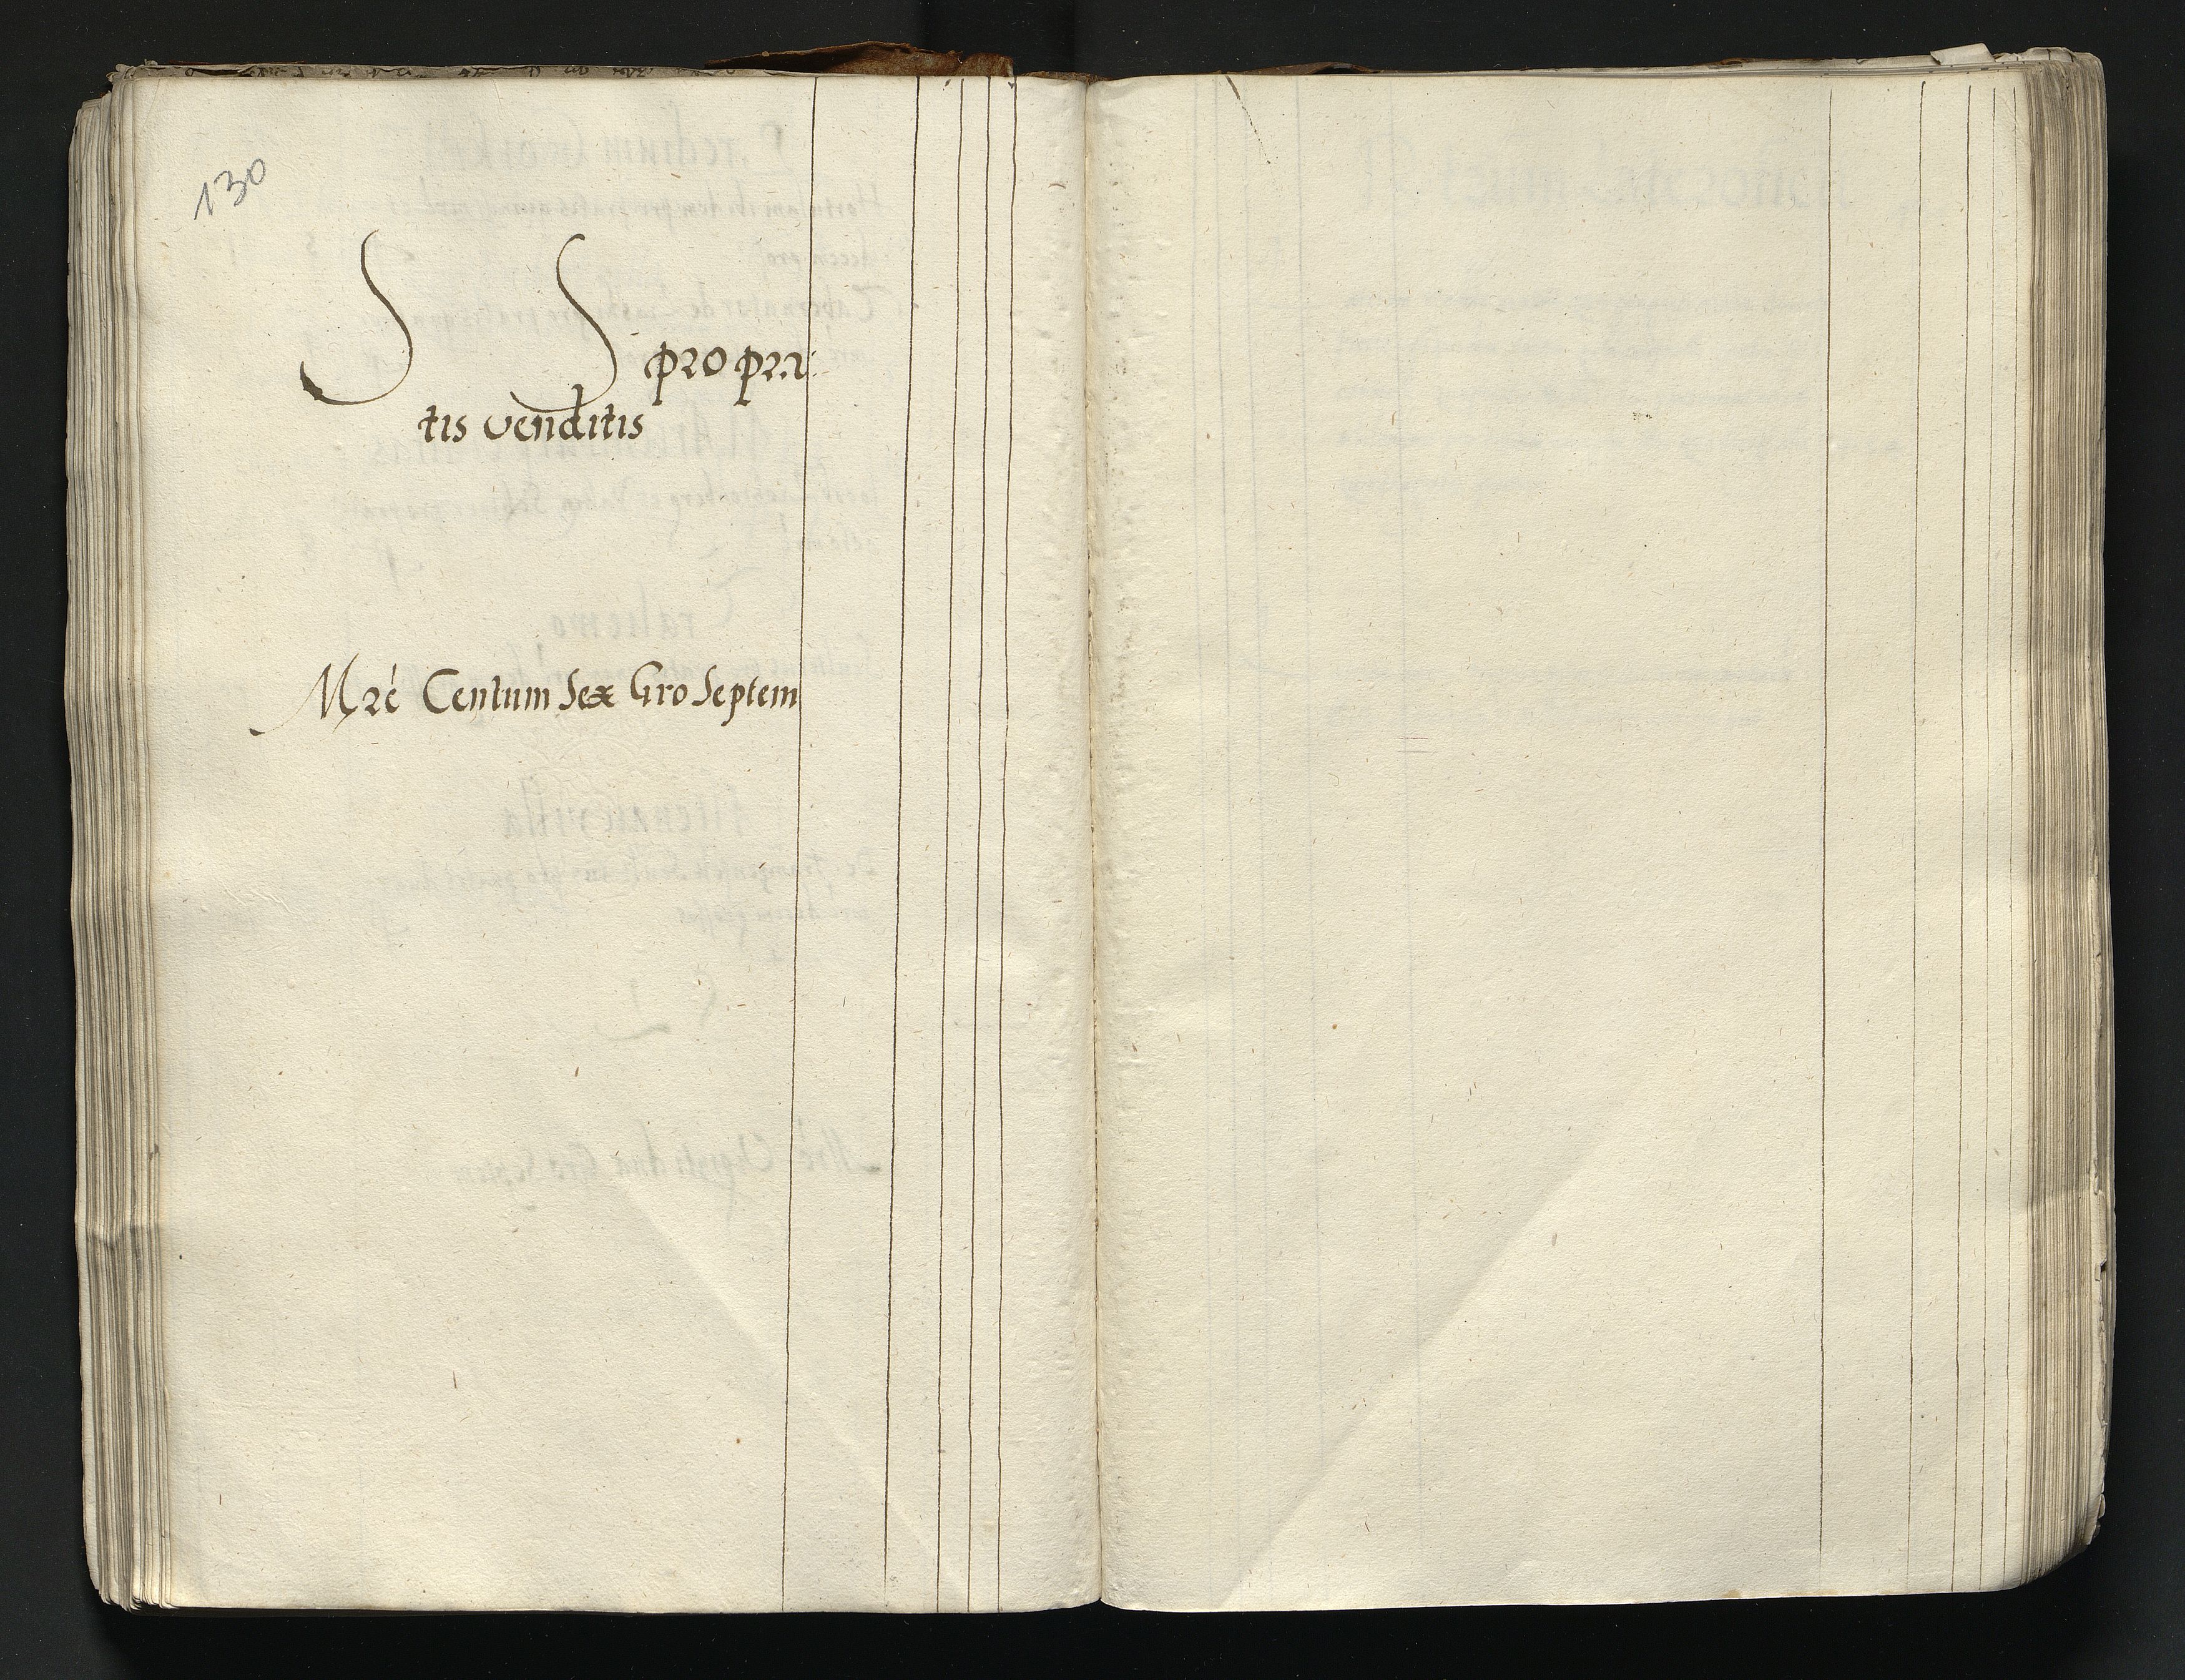 130
S S pro pra:
tis venditis
Mrc Centum Sex Gro Septem